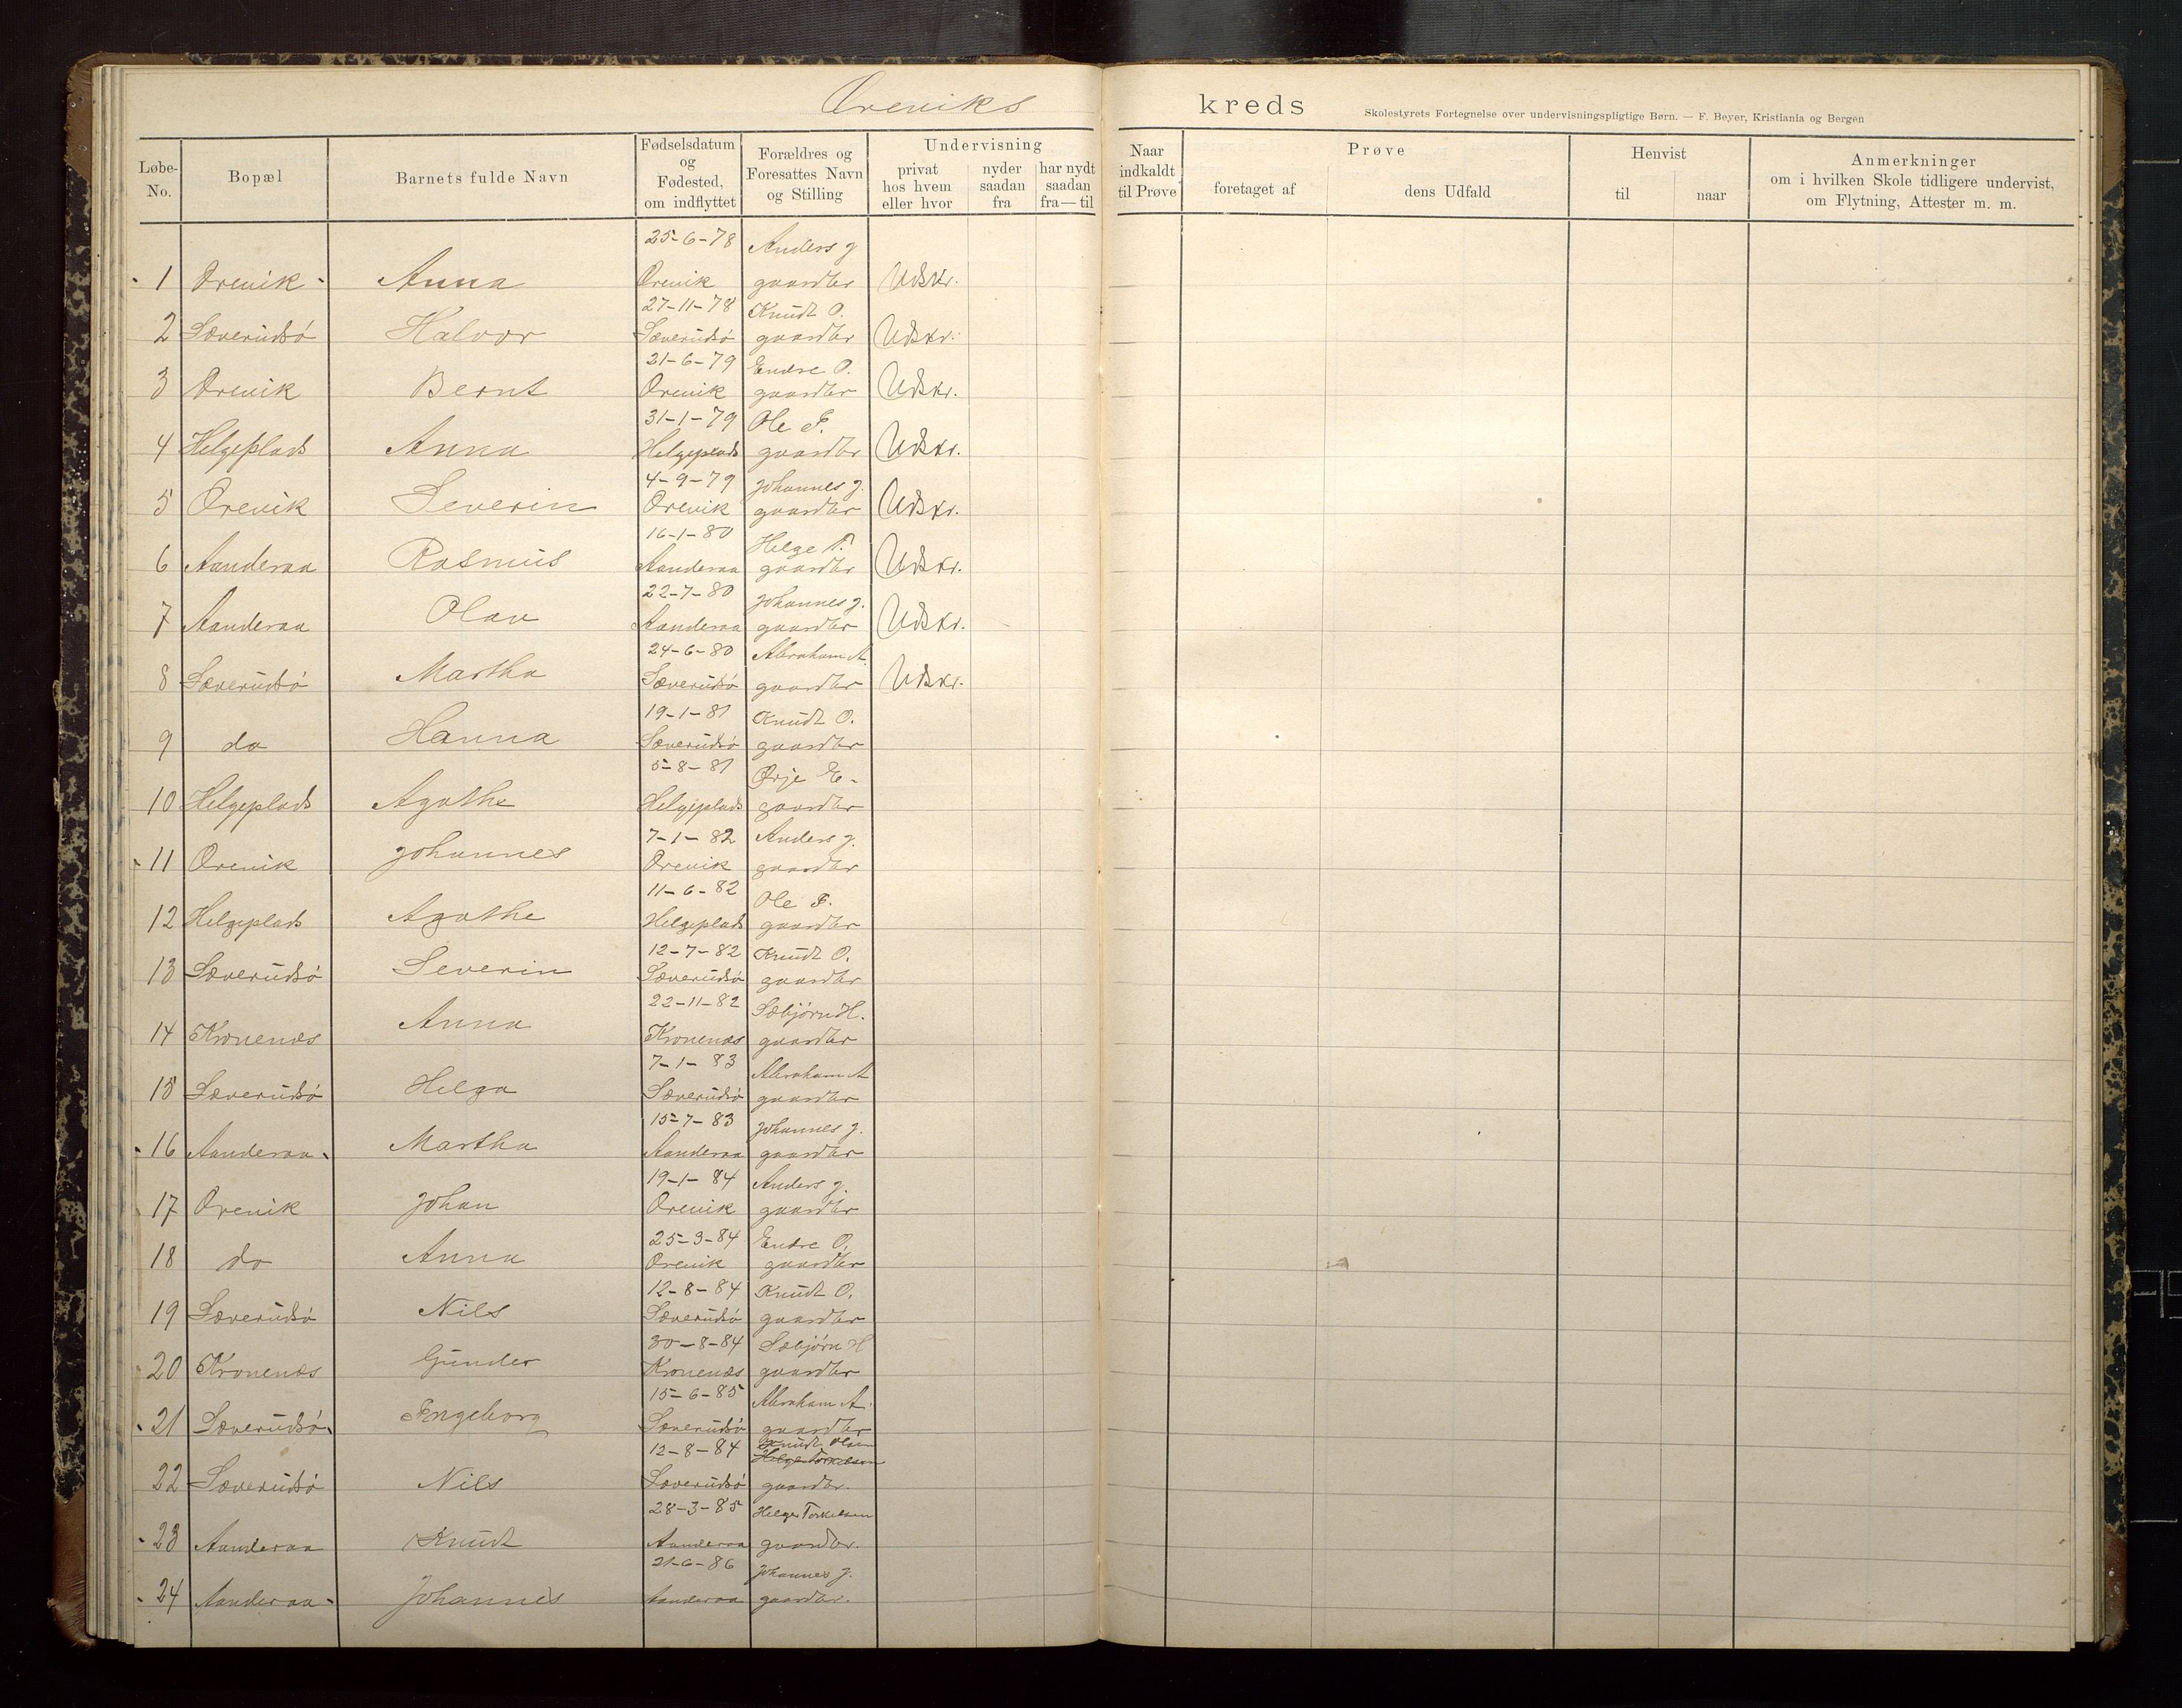 Øreviks kreds
Skolestyrets Fortegnelse over undervisningspligtige Børn. — F. Beyer, Kristiania og Bergen
Løbe-No. Bopæl Barnets fulde Navn Fødselsdatum og Fødested, om indflyttet Forældres og Foresattes Navn og Stilling Undervisning privat hos hvem eller hvor nyder saadan fra har nydt saadan fra—til
Naar indkaldt til Prøve Prøve foretaget af dens Udfald Henvist til naar Anmerkninger om i hvilken Skole tidligere undervist, om Flytning, Attester m. m.
25-6-78 Anders J
1 Ørevik Anna Ørevik gaardbr Udskr.
27-11-78 Knudt O.
2 Sæverudsø Halvor Sæverudsø gaardbr Udskr.
21-6-79 Endre O.
3 Ørevik Bernt Ørevik gaardbr Udskr.
31-1-79 Ole F.
4 Helgeplads Anna Helgeplads gaardbr Udskr.
4-9-79 Johannes J.
5 Ørevik Severin Ørevik gaardbr Udskr.
16-1-80 Helge T.
6 Aanderaa Rasmus Aanderaa gaardbr Udskr.
22-7-80 Johannes J.
7 Aanderaa Olav Aanderaa gaardbr Udskr.
24-6-80 Abraham A.
8 Sæverudsø Martha Sæverudsø gaardbr Udskr.
19-1-81 Knudt O.
9 do Hanna Sæverudsø gaardbr
5-8-81 Ørje E.
10 Helgeplads Agathe Helgeplads gaardbr
7-1-82 Anders J.
11 Ørevik Johannes Ørevik gaardbr
11-6-82 Ole F.
12 Helgeplads Agathe Helgeplads gaardbr
12-7-82 Knudt O.
13 Sæverudsø Severin Sæverudsø gaardbr
22-11-82 Sæbjørn H.
14 Kronenæs Anna Kronenæs gaardbr
7-1-83 Abraham A
15 Sæverudsø Helga Sæverudsø gaardbr
15-7-83 Johannes J.
16 Aanderaa Martha Aanderaa gaardbr
19-1-84 Anders J.
17 Ørevik Johan Ørevik gaardbr
25-3-84 Endre O.
18 do Anna Ørevik gaardbr
12-8-84 Knudt O.
19 Sæverudsø Nils Sæverudsø gaardbr
30-8-84 Sæbjørn H
20 Kronenæs Gunder Kronenæs gaardbr
15-6-85 Abraham A.
21 Sæverudsø Ingeborg Sæverudsø gaardbr
12-8-84 Knudt Olsen
Helge Torkelsen
22 Sæverudsø Nils Sæverudsø gaardbr.
28-3-85 Helge Torkelsen
23 Aanderaa Knudt Aanderaa gaardbr.
21-6-86 Johannes J.
24 Aanderaa Johannes Aanderaa gaardbr.